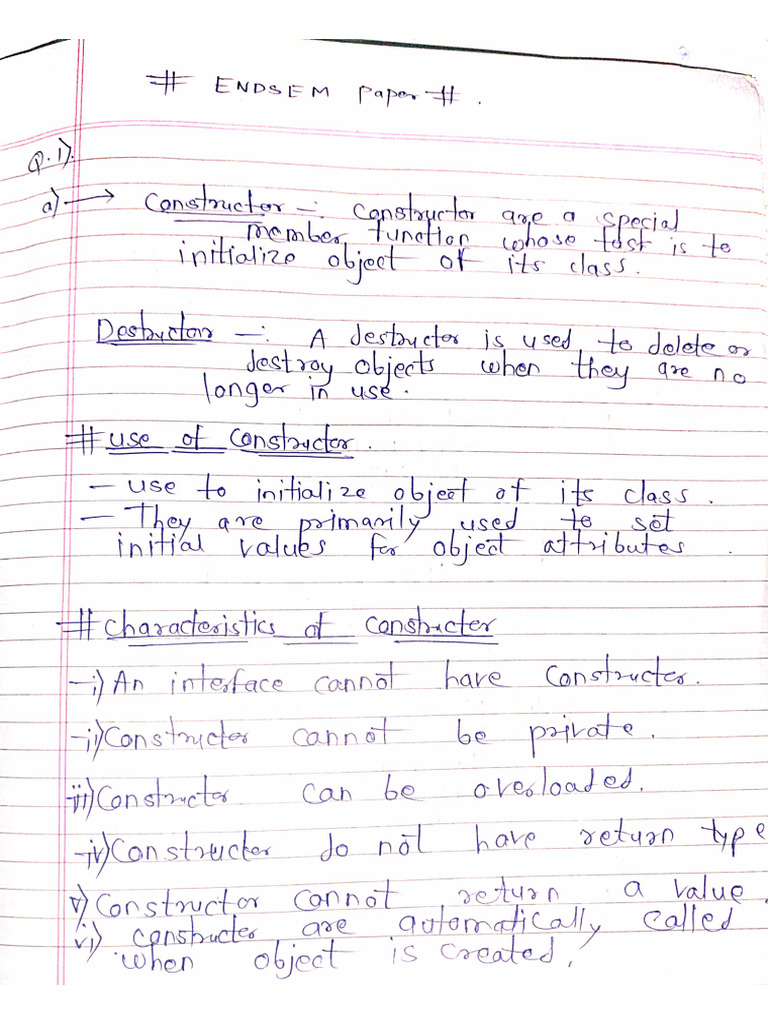 # ENDSEM Paper #.
Q.1).
a) → Constructor -: Constructor are a special
member function whose task is to
initialize object of its class.
Destructor -: A destructor is used to delete or
destroy objects when they are no
longer in use.
# use of constructor.
- use to initialize object of its class.
- They are primarily used to set
initial values for object attributes.
# Characteristics of constructer
- i) An interface cannot have constructer.
- ii) Constructer cannot be private.
iii) Constructer can be overloaded.
- iv) Constructer do not have return type
v) Constructor cannot return a value.
vi) constructer are automatically called
when object is created.